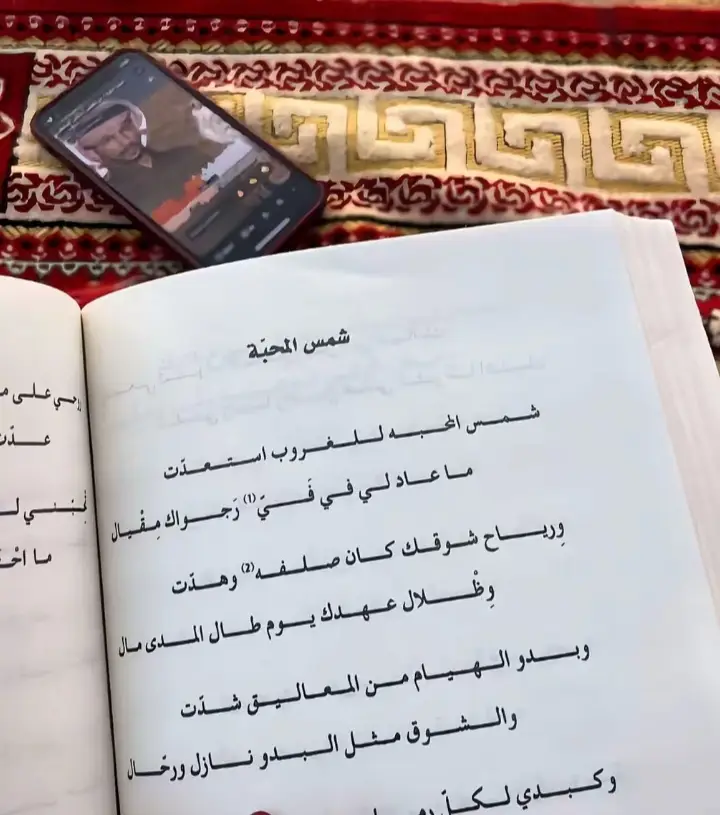 شمس المحبّة
شمس المحبه للغروب استعدّت
ما عاد لي في فَيّ (1) رَجواك مِقْبال
ورياح شوقك كان صلفه (2) وهدّت
وِظْلال عهدك يوم طال المدى مال
وبدو الهيام من المعاليق شدّت
والشوق مثل البدو نازل ورحّال
وكبدي لكلّ
على
عدّت
ما